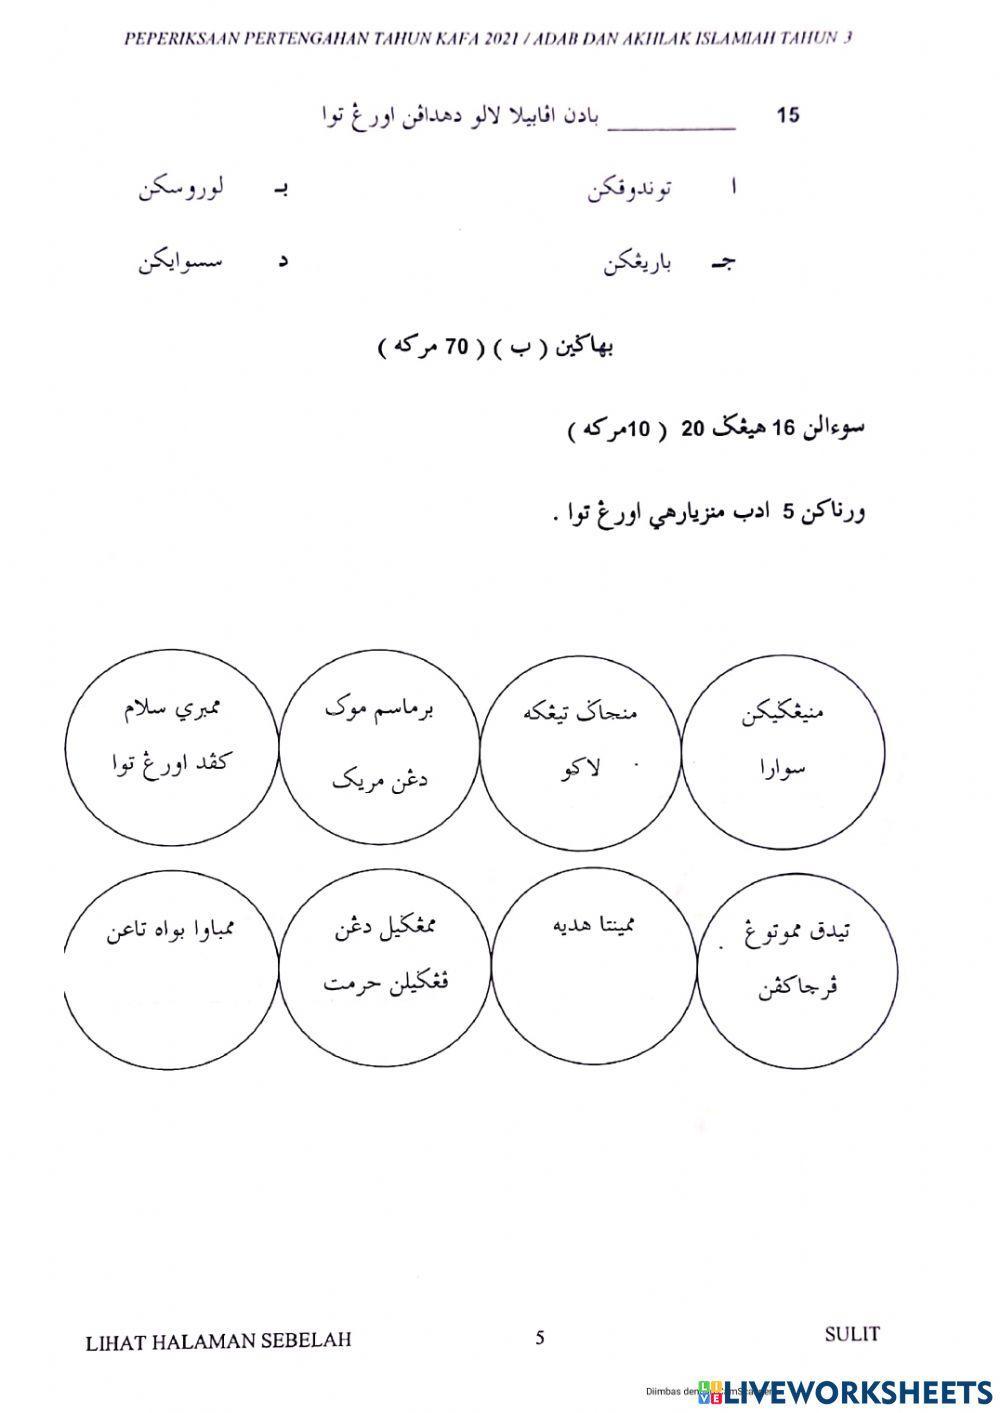 PEPERIKSAAN PERTENGAHAN TAHUN KAFA 2021 / ADAB DAN AKHLAK ISLAMIAH TAHUN 3
15 __________ بادن اڤابيلا لالو دهداڤن اورڠ توا
ا توندوقکن
بـ لوروسکن
جـ باريڠکن
د سسوايکن
بهاݢين ( ب ) ( 70 مرکه )
سوءالن 16 هيڠݢ 20 ( 10مرکه )
ورناکن 5 ادب منزيارهي اورڠ توا .
منيڠݢيکن
سوارا
منجاݢ تيڠکه
لاکو
برماسم موک
دڠن مريک
ممبري سلام
کڤد اورڠ توا
تيدق مموتوڠ
ڤرچاکڤن
ممينتا هديه
ممڠݢيل دڠن
ڤڠݢيلن حرمت
ممباوا بواه تاڠن
LIHAT HALAMAN SEBELAH
5
SULIT
LIVEWORKSHEETS